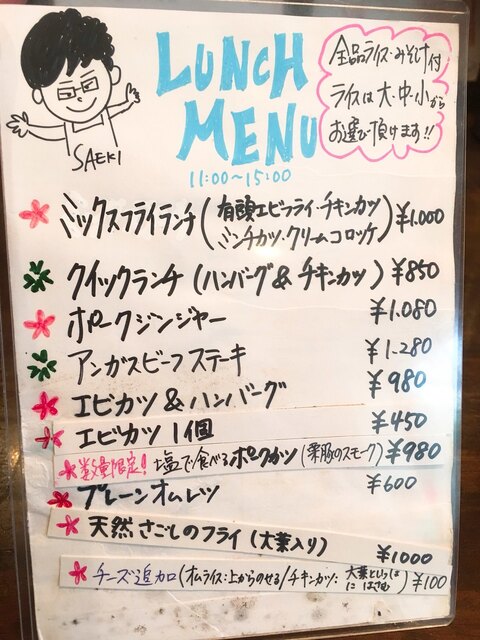 SAEKI
LUNCH
MENU
11:00~15:00
全品ライス・みそ汁付
ライスは大・中・小から
お選び頂けます!!
ミックスフライランチ(有頭エビフライ・チキンカツ
ミンチカツ・クリームコロッケ) ¥1.000
クイックランチ (ハンバーグ&チキンカツ) ¥850
ポークジンジャー ¥1.080
アンガスビーフステーキ ¥1.280
エビカツ&ハンバーグ ¥980
エビカツ 1個 ¥450
数量限定! 塩で食べるポークカツ (栗豚のスモーク) ¥980
プレーンオムレツ ¥600
天然さごしのフライ (大葉入り) ¥1000
チーズ追加 (オムライス:上からのせる/チキンカツ: 大葉といっしょ
にはさむ) ¥100